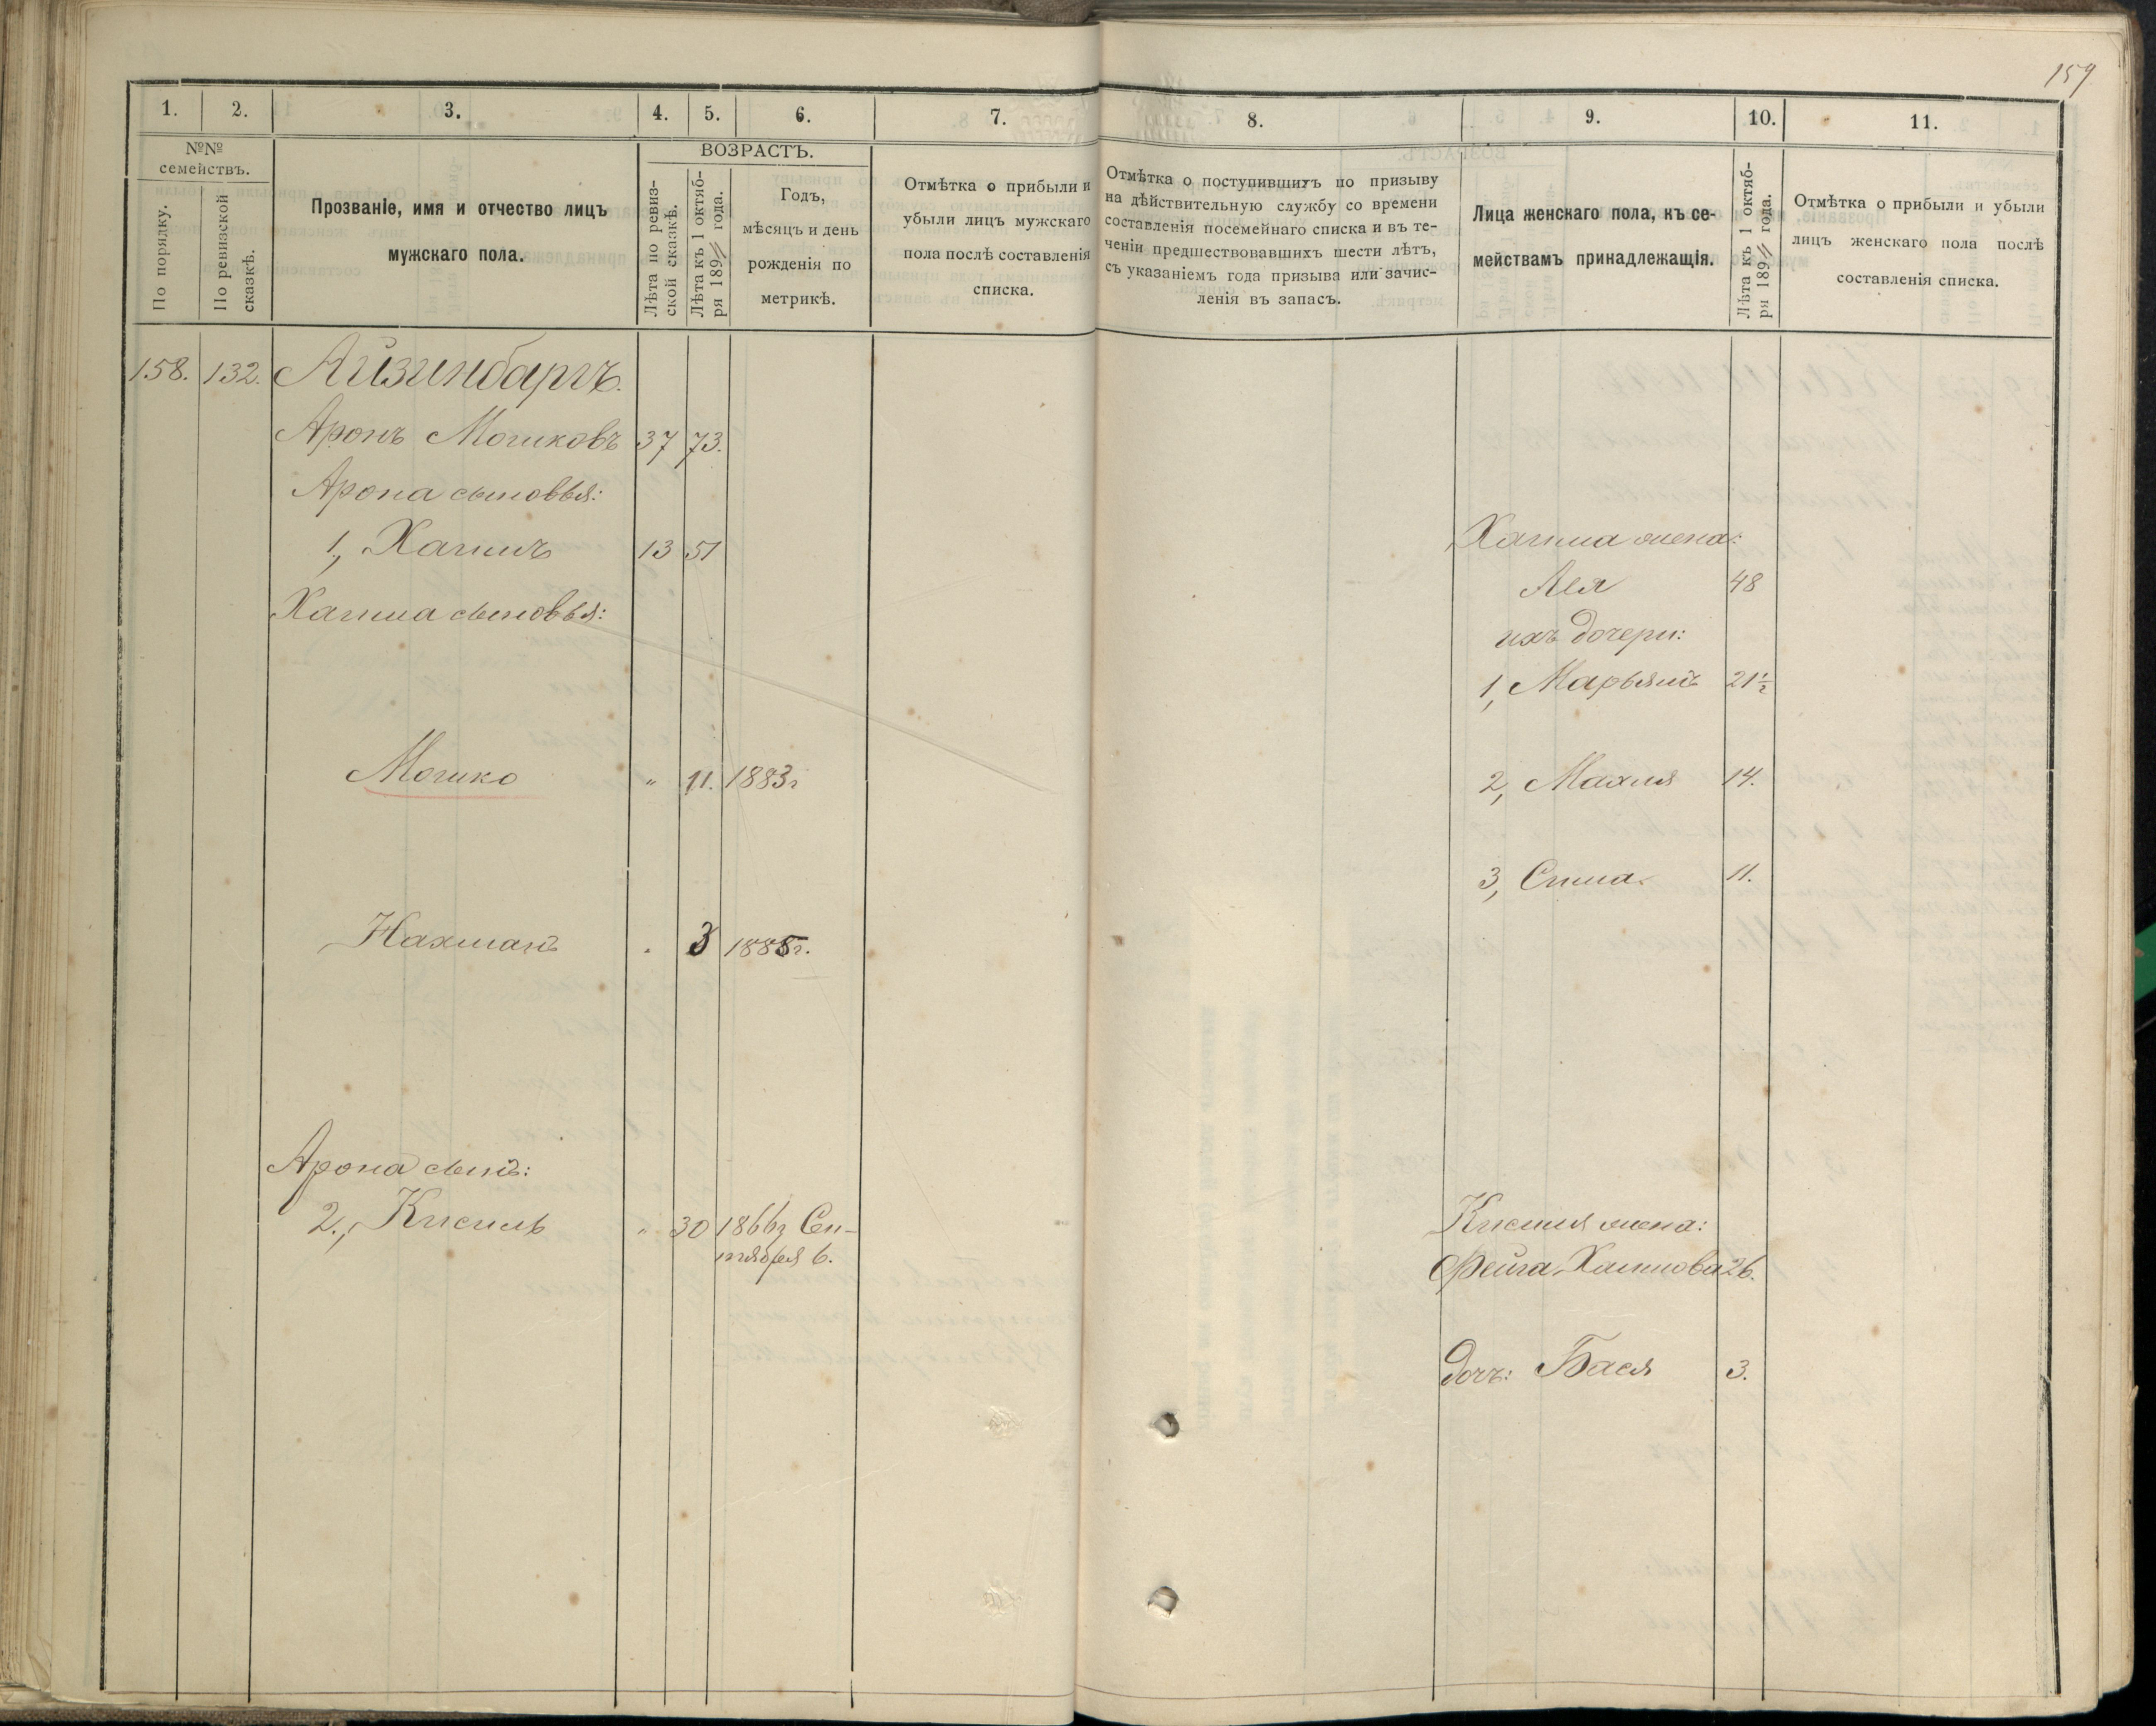 159
1. 2. 3. 4. 5. 6. 7. 8. 9. 10. 11.
№№ семействъ.
По порядку.
По ревизской сказкѣ.
Прозваніе, имя и отчество лицъ
мужскаго пола.
ВОЗРАСТЪ.
Лѣта по ревиз-
ской сказкѣ.
Лѣта къ 1 октяб-
ря 189 года.
Годъ,
мѣсяцъ и день
рожденія по
метрикѣ.
Отмѣтка о прибыли и
убыли лицъ мужскаго
пола послѣ составленія
списка.
Отмѣтка о поступившихъ по призыву
на дѣйствительную службу со времени
составленія посемейнаго списка и въ те-
ченіи предшествовавшихъ шести лѣтъ,
съ указаніемъ года призыва или зачис-
ленія въ запасъ.
Лица женскаго пола, къ се-
мействамъ принадлежащія.
Лѣта къ 1 октяб-
ря 189 года.
Отмѣтка о прибыли и убыли
лицъ женскаго пола послѣ
составленія списка.
158. 132. Айзинбаргъ.
Аронъ Мошковъ 37 73.
Арона сыновья:
1, Хаимъ 13 51 Хаима жена:
Лея 48
Хаима сыновья: ихъ дочери:
1, Марьямъ 21½
Мошко " 11. 1883г 2, Махля 14.
3, Сима. 11.
Нахманъ " 3 1885г.
Арона сынъ:
2., Кисиль " 30 1866г Сен- Кисиля жена:
тября 6. Фейга Хаимова 26.
дочь: Бася 3.